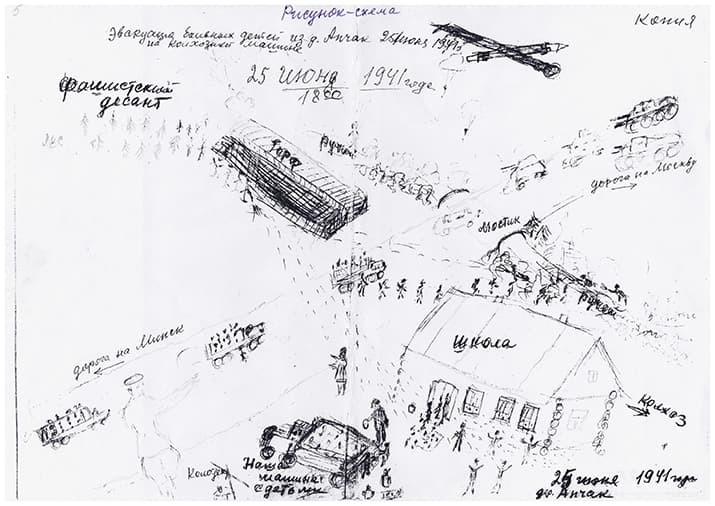 5
Рисунок-схема
Копия
Эвакуация больных детей из д. Апчак 25 июня 1941г
на колхозных машине
25 июня 1941 года
18 00
фашистский
десант
лес
торф
ручей
дорога на Москву
мостик
ручей
школа
дорога на Минск
колхоз
Колодец
Наша
машина
с детьми
25 июня 1941 года
д. Апчак